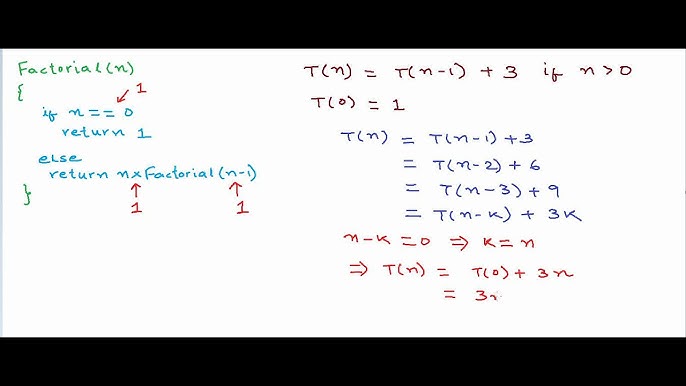 Factorial(n)
{
1
if n == 0
return 1
else
return n×Factorial(n-1)
}
1
1
T(n) = T(n-1) + 3 if n > 0
T(0) = 1
T(n) = T(n-1) + 3
= T(n-2) + 6
= T(n-3) + 9
= T(n-k) + 3k
n-k = 0 ⇒ k = n
⇒ T(n) = T(0) + 3n
= 3n